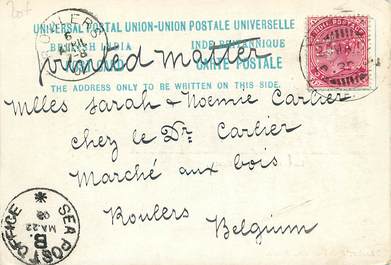 20f
UNIVERSAL POSTAL UNION-UNION POSTALE UNIVERSELLE
BRITISH INDIA INDE BRITANNIQUE
POST CARD CARTE POSTALE
printed matter
THE ADDRESS ONLY TO BE WRITTEN ON THIS SIDE.
Mlles Sarah & Noemie Carlier
chez le Dr Carlier
Marché aux bois
Roulers
Belgium
ROULERS
SEA POST OFFICE
B
MA 22